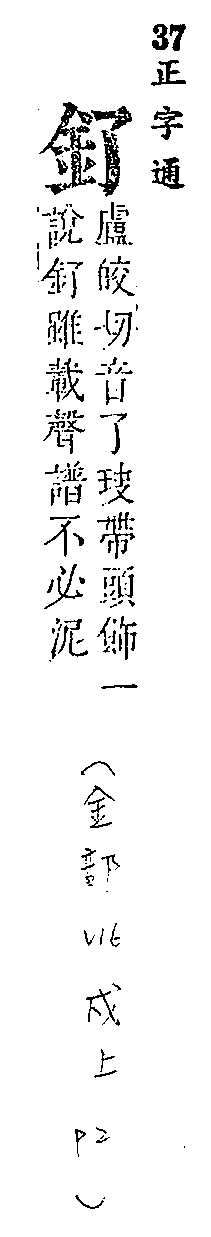 37 正字通
釕
盧皎切音了玦帶頭飾一
說釕雖載聲譜不必泥
(金部 V16 戌上 P2)